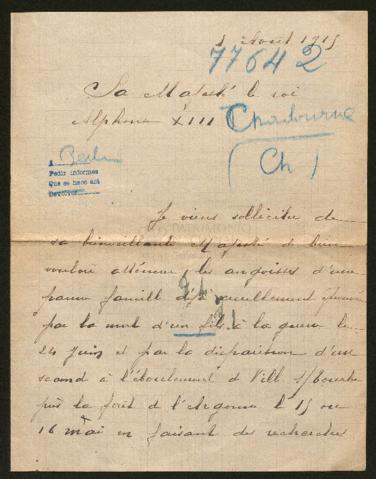 Août 1915
77642
Sa Majesté le roi
Alphonse XIII
Charbourne
(Ch)
A Berlin
Pedir informes
Que se hace acá
Devolver
Je viens solliciter de
sa bienveillante Majesté de bien
vouloir atténuer les angoisses d'une
famille déjà cruellement éprouvée
par la mort d'un fils à la guerre le
24 Juin et par la disparition d'un
second à l'éboulement de Ville s/Tourbe
près la forêt de l'Argonne le 15 ou
16 mai en faisant des recherches